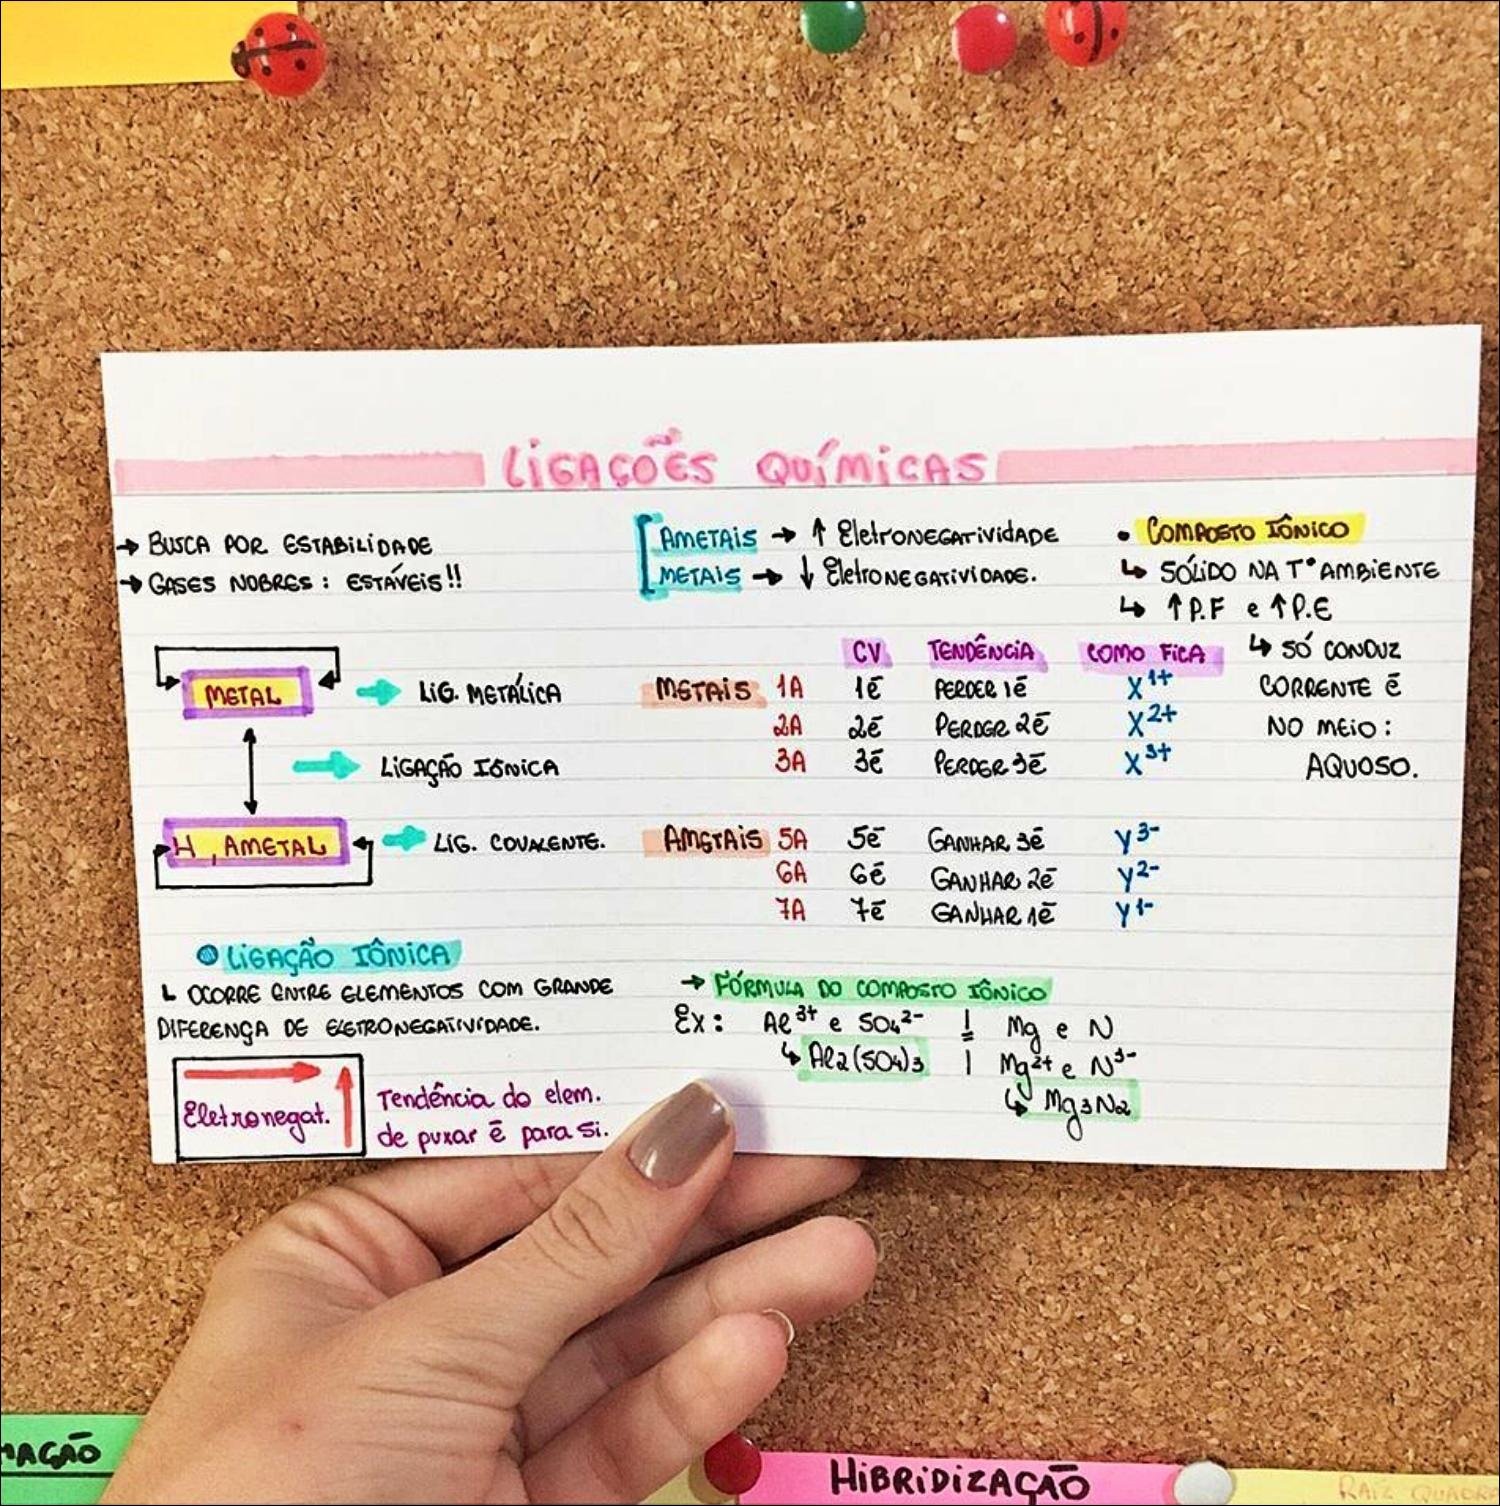 LIGAÇÕES QUÍMICAS
→ BUSCA POR ESTABILIDADE
→ GASES NOBRES : ESTÁVEIS!!
AMETAIS → ↑ Eletronegatividade
METAIS → ↓ Eletronegatividade.
• COMPOSTO IÔNICO
↳ SÓLIDO NA T° AMBIENTE
↳ ↑P.F e ↑P.E
↳ SÓ CONDUZ
CORRENTE É
NO MEIO:
AQUOSO.
METAL → LIG. METÁLICA
→ LIGAÇÃO IÔNICA
H, AMETAL → LIG. COVALENTE.
CV TENDÊNCIA COMO FICA
METAIS 1A 1ē PERDER 1ē X¹⁺
2A 2ē PERDER 2ē X²⁺
3A 3ē PERDER 3ē X³⁺
AMETAIS 5A 5ē GANHAR 3ē Y³⁻
6A 6ē GANHAR 2ē Y²⁻
7A 7ē GANHAR 1ē Y¹⁻
LIGAÇÃO IÔNICA
↳ OCORRE ENTRE ELEMENTOS COM GRANDE
DIFERENÇA DE ELETRONEGATIVIDADE.
Eletronegat.
Tendência do elem.
de puxar ē para si.
→ FÓRMULA DO COMPOSTO IÔNICO
Ex: Al³⁺ e SO₄²⁻ | Mg e N
↳ Al₂(SO₄)₃ | Mg²⁺ e N³⁻
↳ Mg₃N₂
MAÇÃO
HIBRIDIZAÇÃO
RAIZ QUADRA